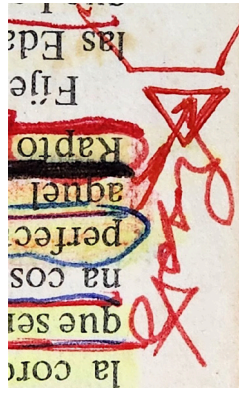 la coro
que ser
na cos
perfec
aquel
Rapto
Fíje
las Eda